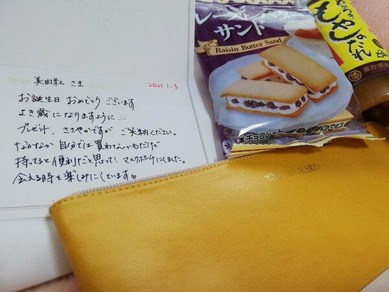 さま
2021.1.3
お誕生日 おめでとう ございます
よき歳になりますように♪
プレゼント、ささやかですが ご笑納ください。
なかなか 自分では買わないものだけど
持ってると便利だと思って! マルチポーチにしました。
会える時を楽しみにしています。
レーズン
サンド
Raisin Butter Sand
もやしのたれ